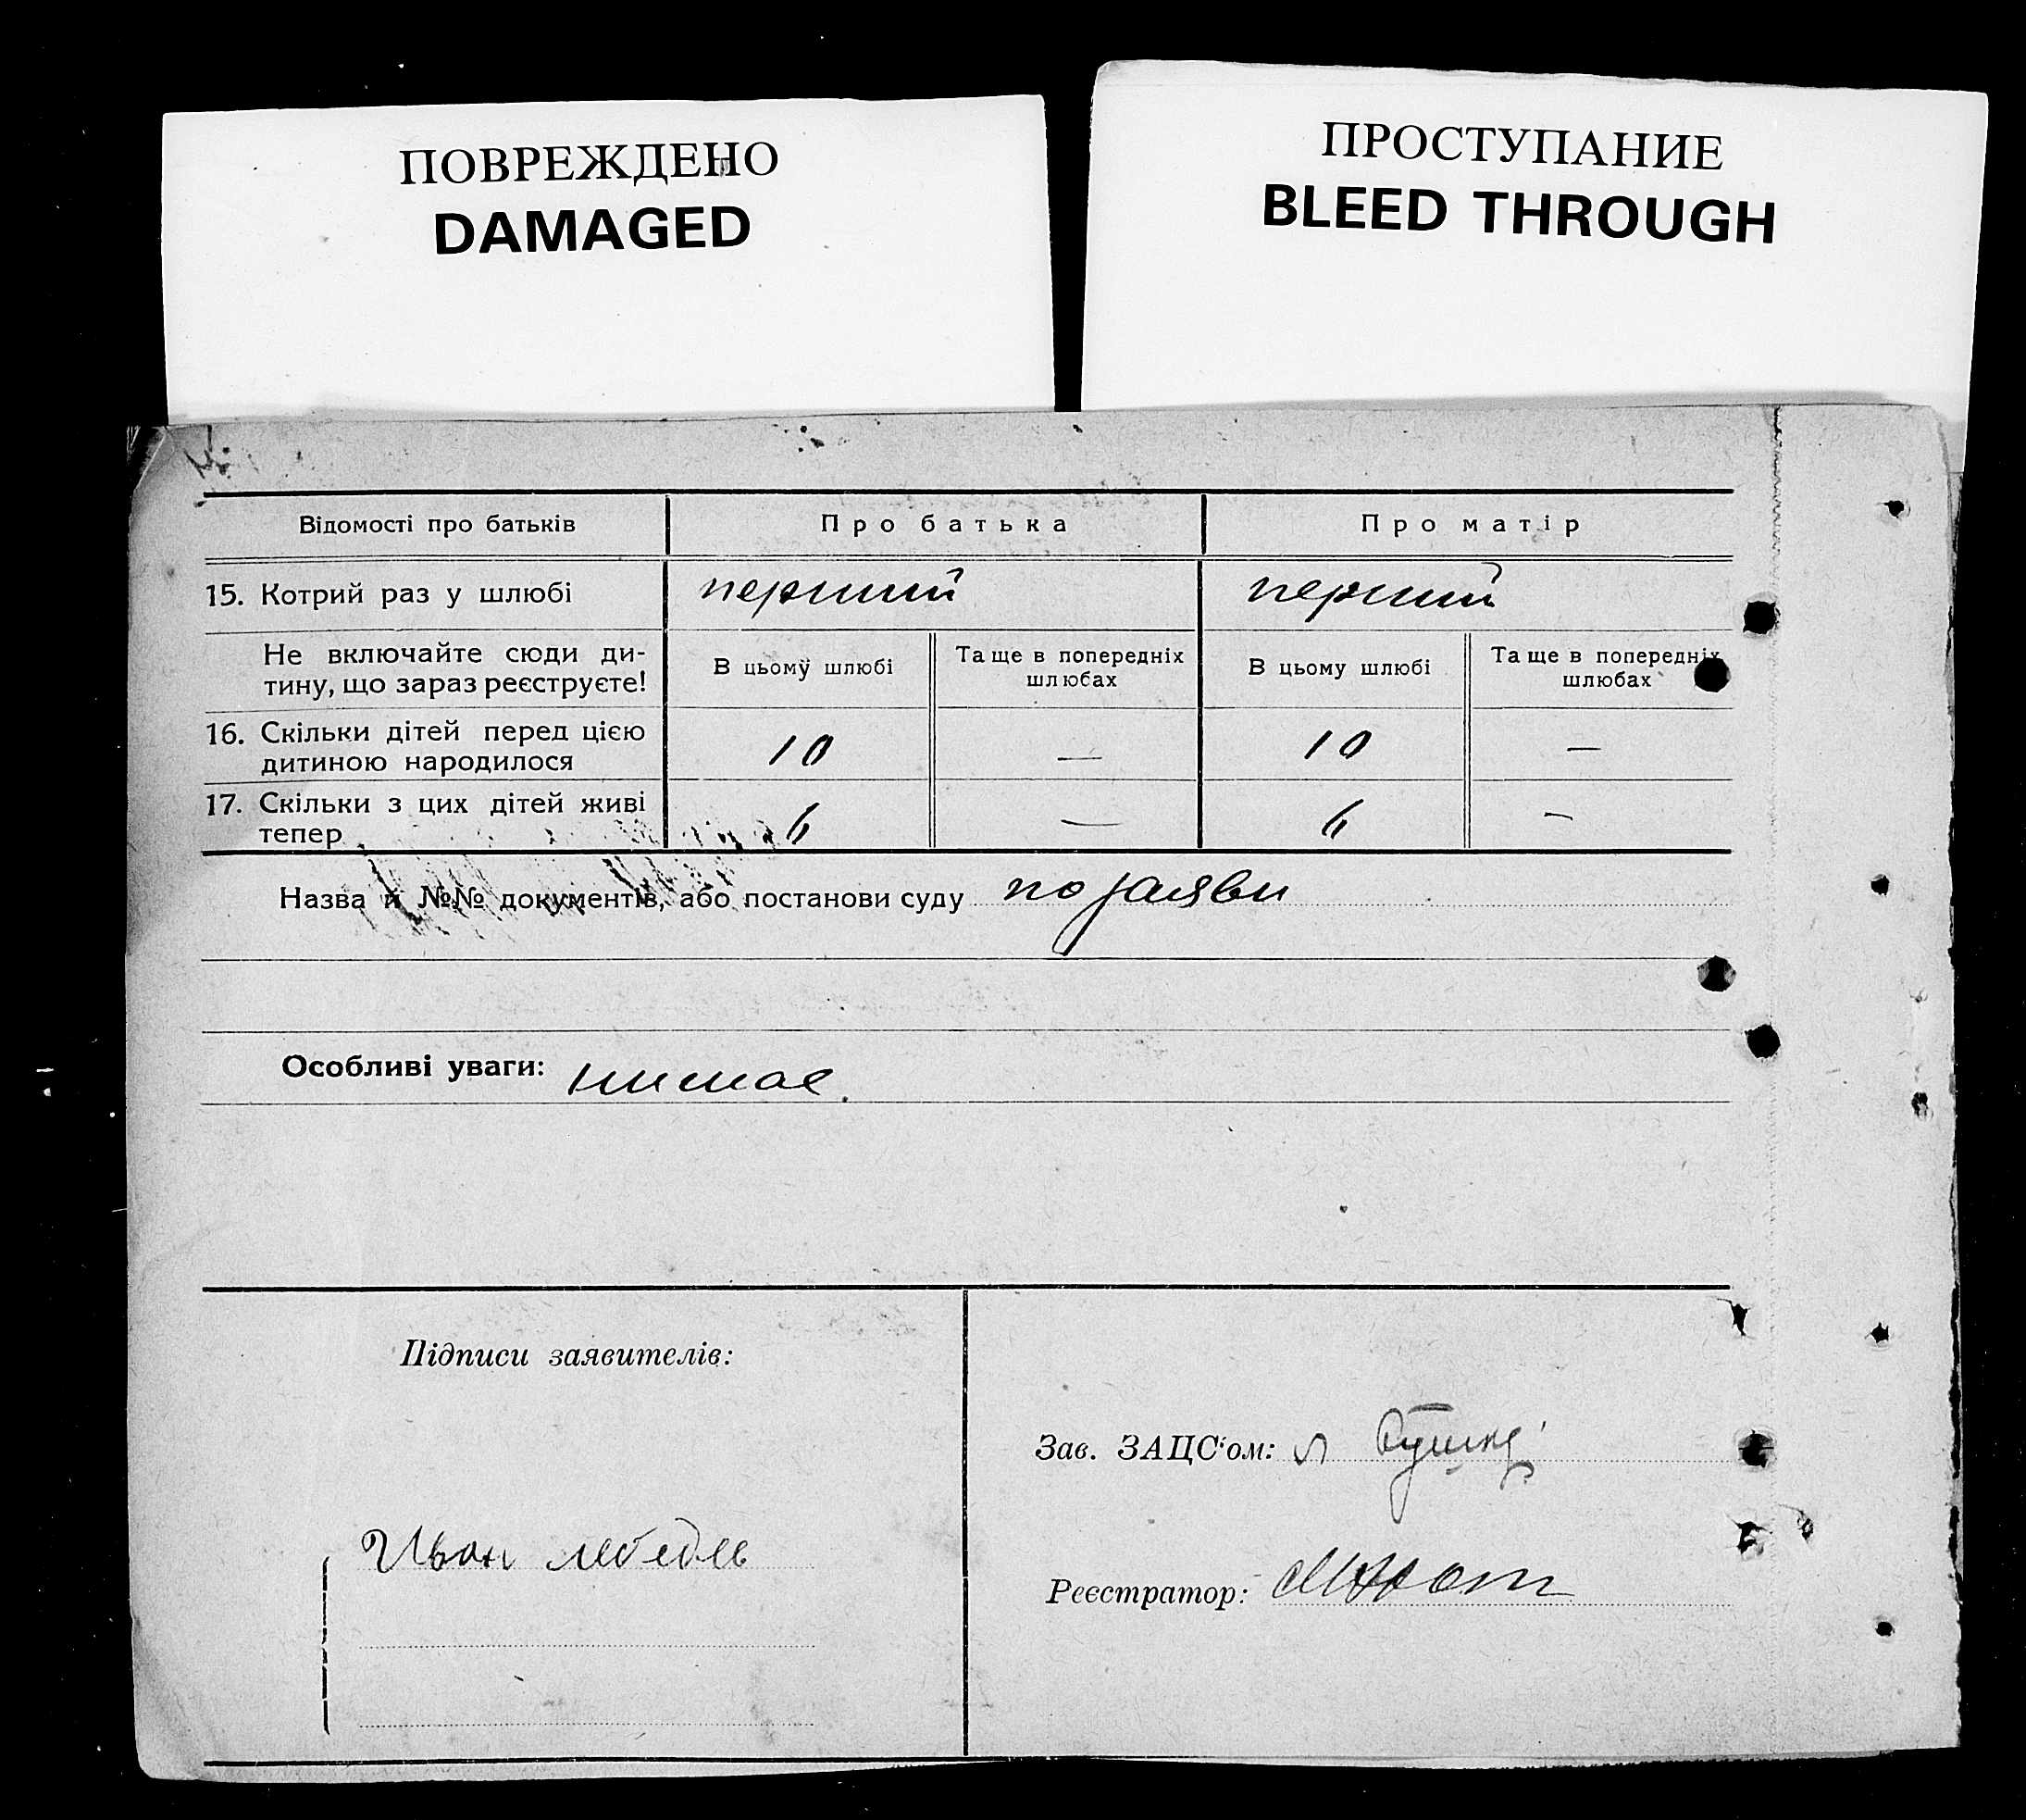 ПОВРЕЖДЕНО
DAMAGED
ПРОСТУПАНИЕ
BLEED THROUGH
Відомості про батьків
Про батька
Про матір
15. Котрий раз у шлюбі
перший
перший
Не включайте сюди ди-
тину, що зараз реєструєте!
В цьому шлюбі
Та ще в попередніх
шлюбах
В цьому шлюбі
Та ще в попередніх
шлюбах
16. Скільки дітей перед цією
дитиною народилося
10
—
10
—
17. Скільки з цих дітей живі
тепер
6
—
6
—
Назва й №№ документів, або постанови суду по заяви
Особливі уваги: нимае.
Підписи заявителів:
Иван лебедь
Зав. ЗАЦС'ом:
Реєстратор: